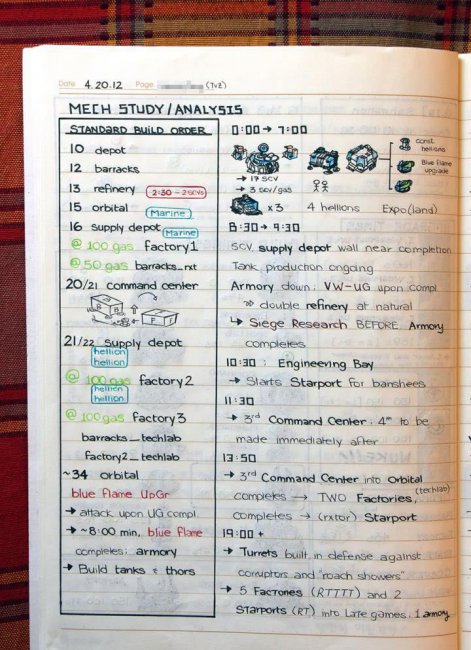 Date 4.20.12 Page (TvZ)
MECH STUDY/ANALYSIS
STANDARD BUILD ORDER
10 depot
12 barracks
13 refinery 2:30 - 2 SCVs
15 orbital Marine
16 supply depot Marine
@ 100 gas factory1
@ 50 gas barracks_rxt
20/21 command center
B F
21/22 supply depot
hellion
hellion
@ 100 gas factory2
hellion
hellion
@ 100 gas factory3
barracks_techlab
factory2_techlab
~34 orbital
blue flame UpGr
→ attack upon UG compl.
→ ~8:00 min, blue flame
completes; armory
→ Build tanks + thors
0:00 → 7:00
const. hellions
Blue flame upgrade
→ 17 SCV
→ 3 SCV/gas
x 3 4 hellions Expo(land)
8:30 → 9:30
SCV supply depot wall near completion
Tank production ongoing
Armory down; VW-UG upon compl.
double refinery at natural
↳ Siege Research BEFORE Armory
completes
10:30 : Engineering Bay
→ Starts Starport for banshees
11:30
→ 3rd Command Center; 4th to be
made immediately after
13:50
→ 3rd Command Center into Orbital
completes → TWO Factories, (techlab)
completes → (rxtor) Starport
19:00 +
→ Turrets built in defense against
corruptors and "roach showers"
→ 5 Factories (RTTTT) and 2
Starports (RT) into Late games; 1 armory